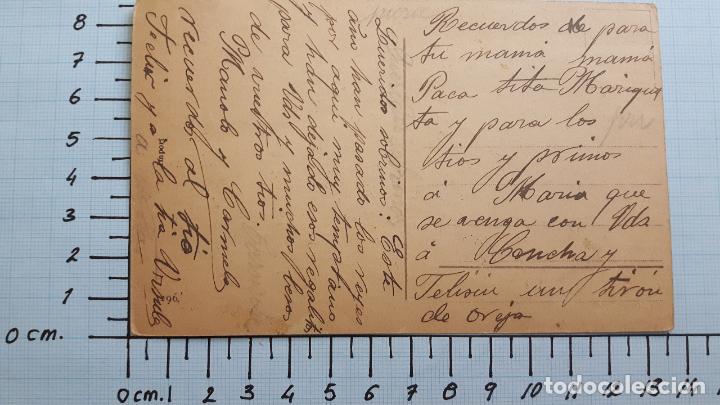 Queridos sobrinos: Este
año han pasado los reyes
por aqui muy temprano
y han dejado esos regalitos
para Vds y muchos besos
de vuestros tios.
Manolo y Carmela
recuerdos al tio
Felix y a la tia
Recuerdos de para
tu mamá mamá
Paca tita Mariqui
ta y para los
tios y primos
á Maria que
se venga con Vds
á Concha y
un tirón
de oreja
96
8
7
6
5
4
3
2
1
0 cm.
0 cm. 1 2 3 4 5 6 7 8 9 10 11 12 13 14
todocoleccion